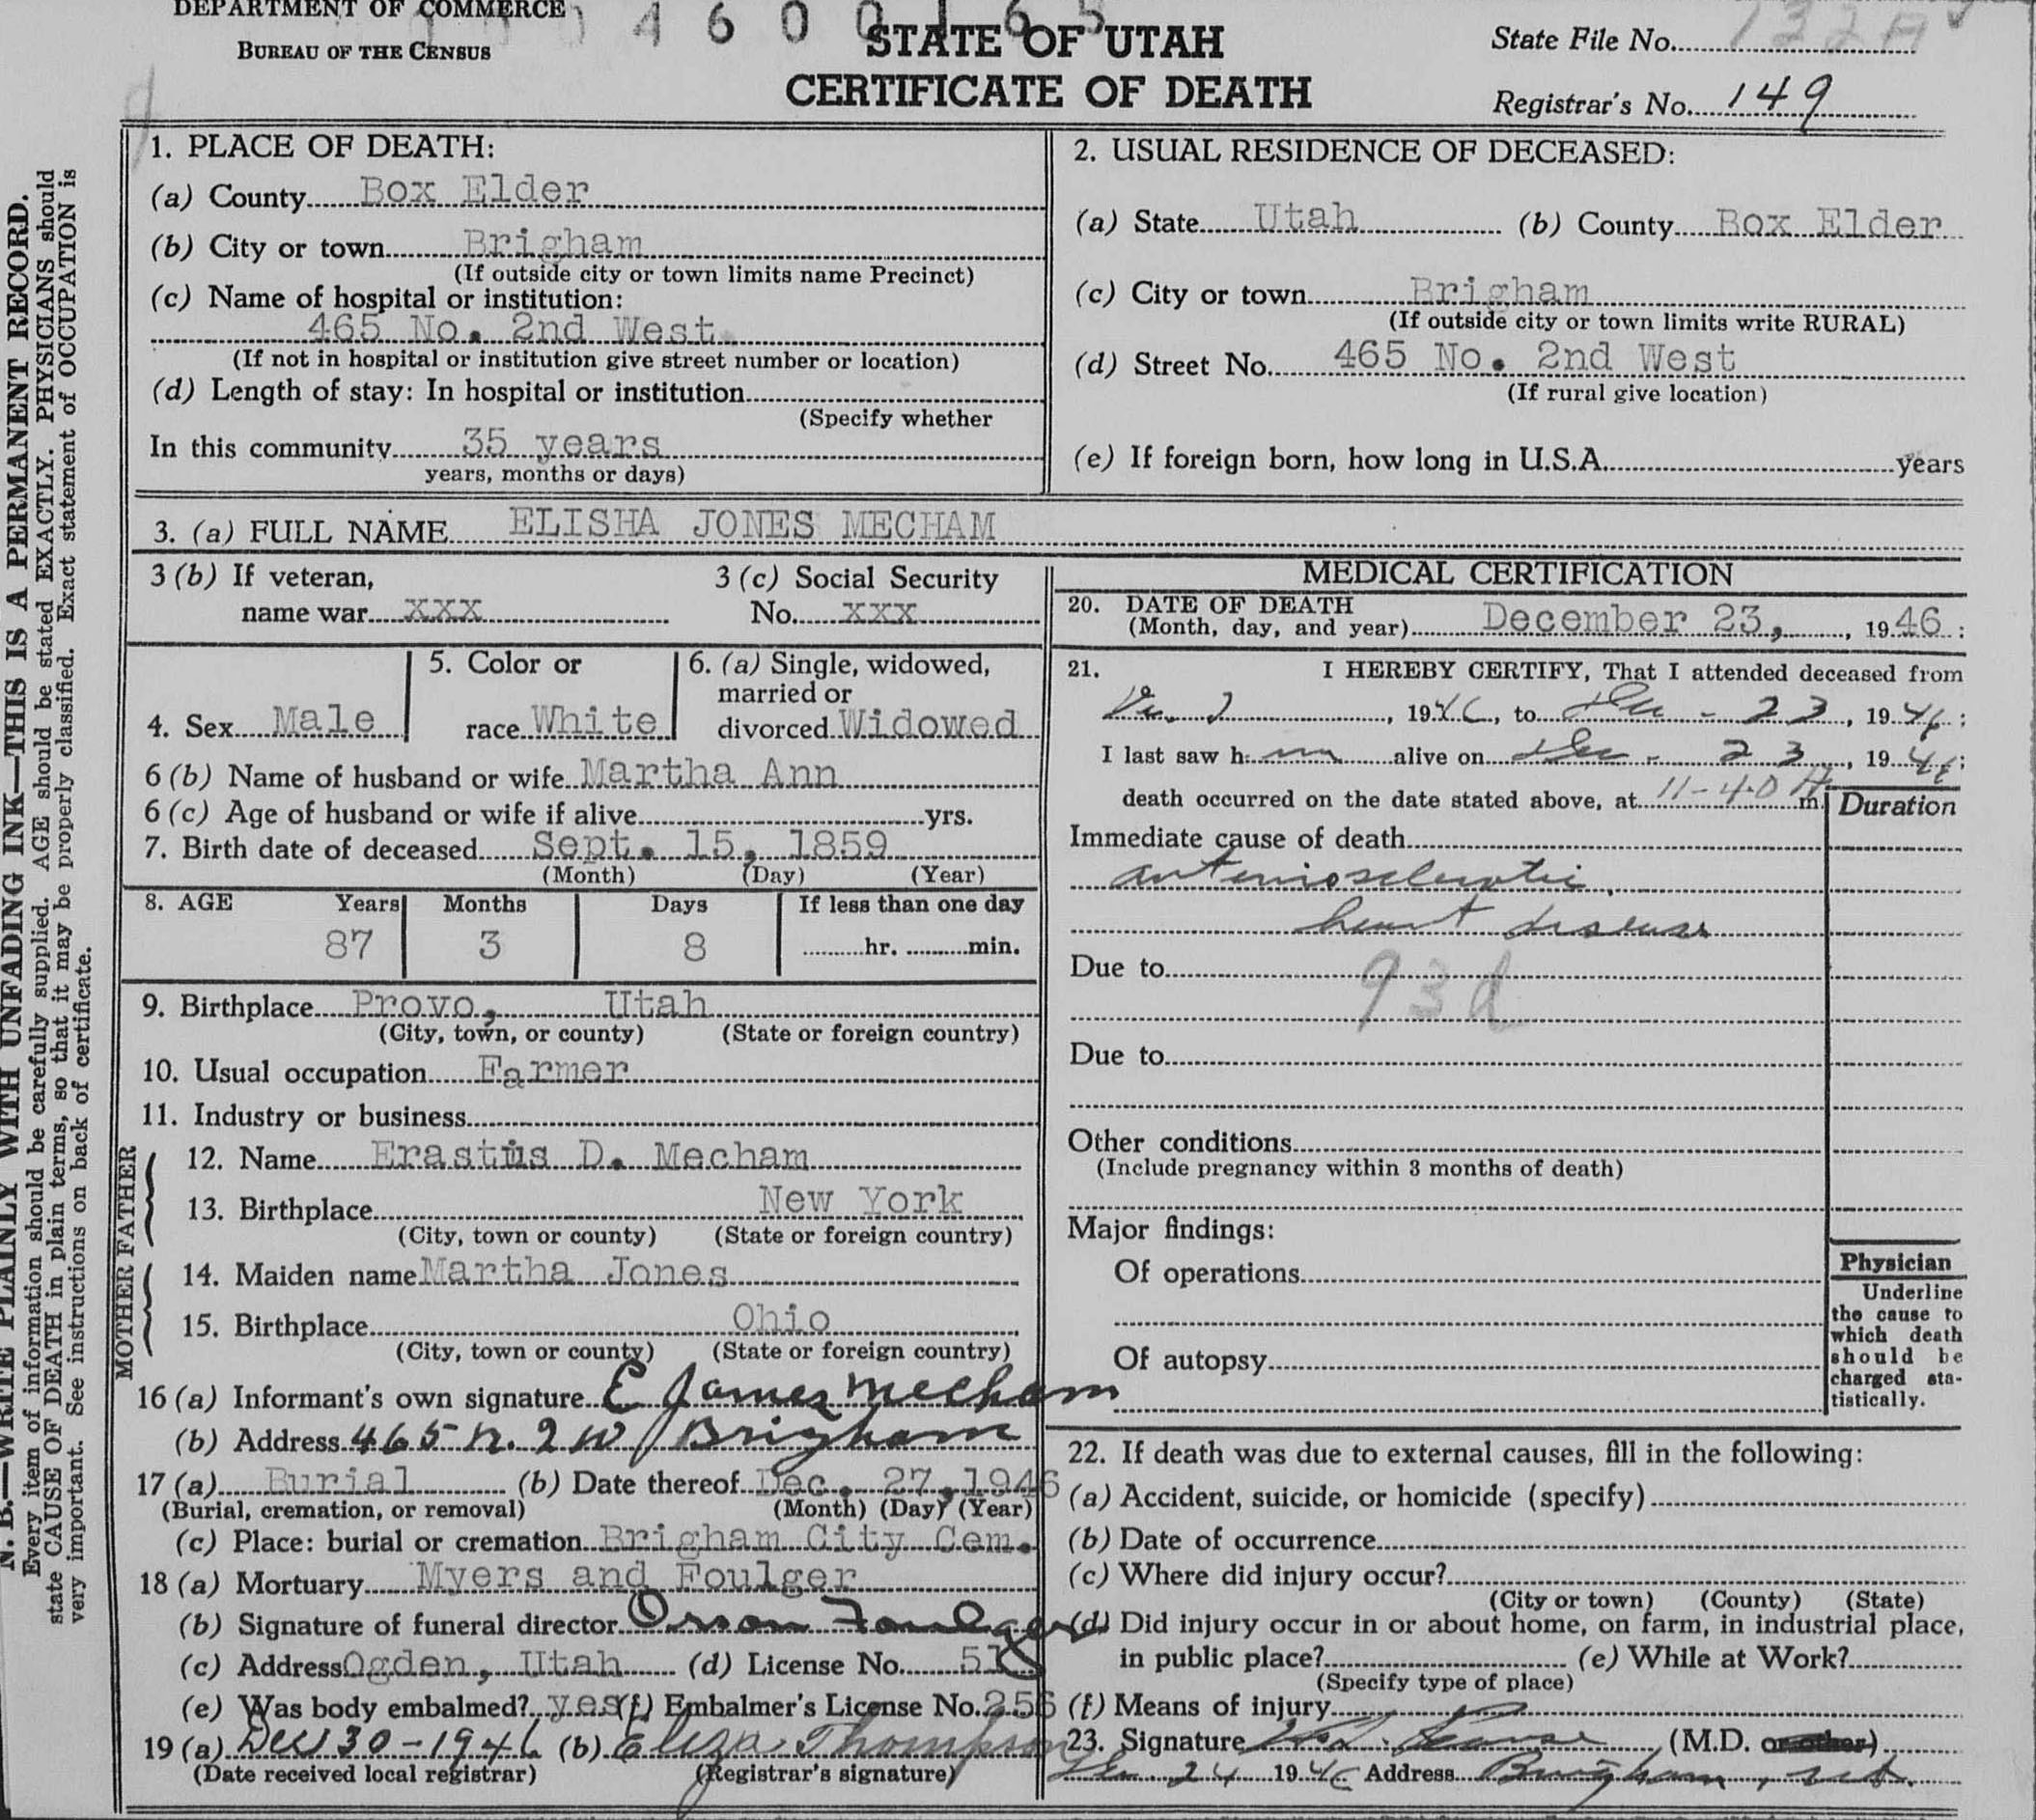 DEPARTMENT OF COMMERCE
BUREAU OF THE CENSUS
4 6 0 0 1 6 5
STATE OF UTAH
CERTIFICATE OF DEATH
State File No.
Registrar's No. 149
N. B.—WRITE PLAINLY WITH UNFADING INK—THIS IS A PERMANENT RECORD.
Every item of information should be carefully supplied. AGE should be stated EXACTLY. PHYSICIANS should
state CAUSE OF DEATH in plain terms, so that it may be properly classified. Exact statement of OCCUPATION is
very important. See instructions on back of certificate.
1. PLACE OF DEATH:
(a) County Box Elder
(b) City or town Brigham
(If outside city or town limits name Precinct)
(c) Name of hospital or institution:
465 No. 2nd West
(If not in hospital or institution give street number or location)
(d) Length of stay: In hospital or institution
(Specify whether
In this community 35 years
years, months or days)
2. USUAL RESIDENCE OF DECEASED:
(a) State Utah (b) County Box Elder
(c) City or town Brigham
(If outside city or town limits write RURAL)
(d) Street No. 465 No. 2nd West
(If rural give location)
(e) If foreign born, how long in U.S.A. years
3. (a) FULL NAME ELISHA JONES MECHAM
3 (b) If veteran,
name war xxx
3 (c) Social Security
No. xxx
4. Sex Male
5. Color or
race White
6. (a) Single, widowed,
married or
divorced Widowed
6 (b) Name of husband or wife Martha Ann
6 (c) Age of husband or wife if alive yrs.
7. Birth date of deceased Sept. 15, 1859
(Month) (Day) (Year)
8. AGE Years Months Days If less than one day
87 3 8 hr. min.
9. Birthplace Provo, Utah
(City, town, or county) (State or foreign country)
10. Usual occupation Farmer
11. Industry or business
FATHER
12. Name Erastus D. Mecham
13. Birthplace New York
(City, town or county) (State or foreign country)
MOTHER
14. Maiden name Martha Jones
15. Birthplace Ohio
(City, town or county) (State or foreign country)
16 (a) Informant's own signature E James Mecham
(b) Address 465 N. 2 W Brigham
17 (a) Burial (b) Date thereof Dec. 27, 1946
(Burial, cremation, or removal) (Month) (Day) (Year)
(c) Place: burial or cremation Brigham City Cem.
18 (a) Mortuary Myers and Foulger
(b) Signature of funeral director Orson Foulger
(c) Address Ogden, Utah (d) License No. 51
(e) Was body embalmed? yes (f) Embalmer's License No. 256
19 (a) Dec 30-1946 (b) Eliza Thompson
(Date received local registrar) (Registrar's signature)
MEDICAL CERTIFICATION
20. DATE OF DEATH
(Month, day, and year) December 23, , 1946 :
21. I HEREBY CERTIFY, That I attended deceased from
Dec. 2, 1946, to Dec - 23, 1946;
I last saw h im alive on Dec - 23, 1946;
death occurred on the date stated above, at 11-40 A m.
Duration
Immediate cause of death
arteriosclerotic
heart disease
Due to 93d
Due to
Other conditions
(Include pregnancy within 3 months of death)
Major findings:
Of operations
Of autopsy
Physician
Underline
the cause to
which death
should be
charged sta-
tistically.
22. If death was due to external causes, fill in the following:
(a) Accident, suicide, or homicide (specify)
(b) Date of occurrence
(c) Where did injury occur?
(City or town) (County) (State)
(d) Did injury occur in or about home, on farm, in industrial place,
in public place? (e) While at Work?
(Specify type of place)
(f) Means of injury
23. Signature (M.D. or other)
Dec 24 1946 Address Brigham, Ut.